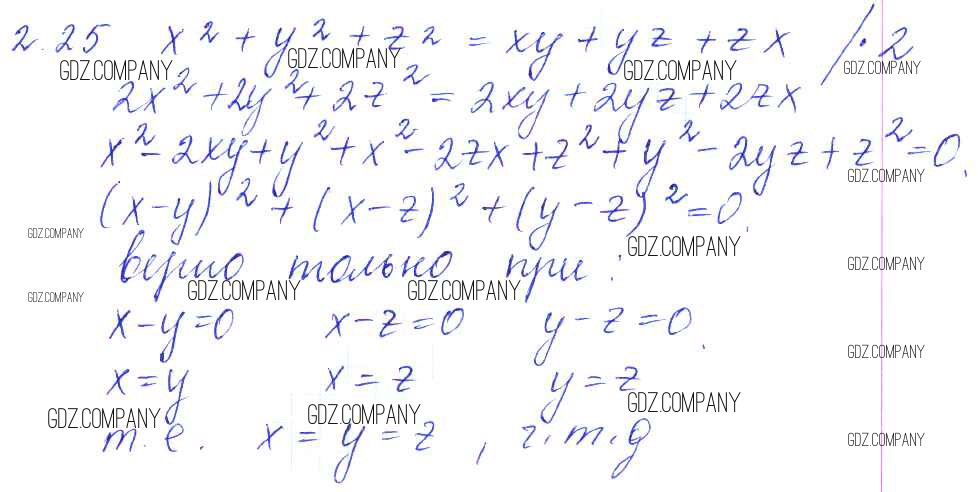 2.25 x² + y² + z² = xy + yz + zx /·2
GDZ.COMPANY GDZ.COMPANY GDZ.COMPANY GDZ.COMPANY
2x² + 2y² + 2z² = 2xy + 2yz + 2zx
x² - 2xy + y² + x² - 2zx + z² + y² - 2yz + z² = 0
GDZ.COMPANY
(x-y)² + (x-z)² + (y-z)² = 0
GDZ.COMPANY GDZ.COMPANY
верно только при:
GDZ.COMPANY GDZ.COMPANY GDZ.COMPANY GDZ.COMPANY
x-y=0 x-z=0 y-z=0
GDZ.COMPANY
x=y x=z y=z
GDZ.COMPANY GDZ.COMPANY GDZ.COMPANY
т.е. x = y = z, ч.т.д
GDZ.COMPANY